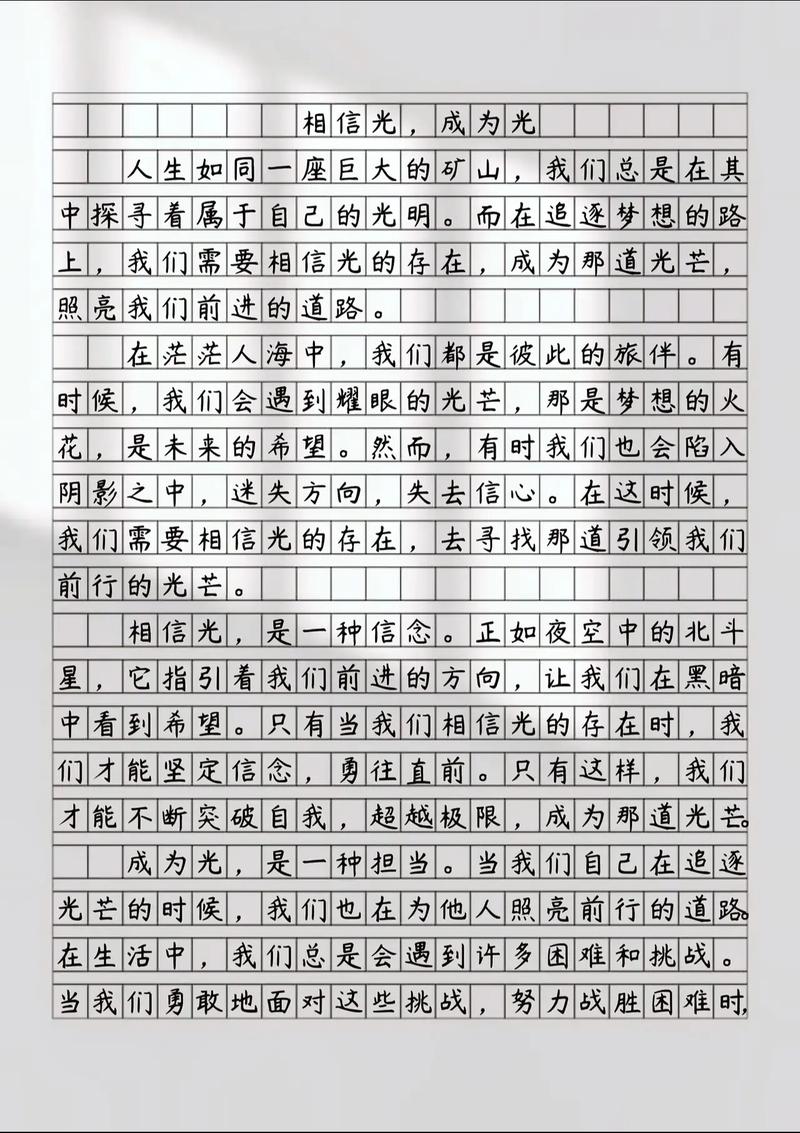 相信光，成为光
人生如同一座巨大的矿山，我们总是在其
中探寻着属于自己的光明。而在追逐梦想的路
上，我们需要相信光的存在，成为那道光芒，
照亮我们前进的道路。
在茫茫人海中，我们都是彼此的旅伴。有
时候，我们会遇到耀眼的光芒，那是梦想的火
花，是未来的希望。然而，有时我们也会陷入
阴影之中，迷失方向，失去信心。在这时候，
我们需要相信光的存在，去寻找那道引领我们
前行的光芒。
相信光，是一种信念。正如夜空中的北斗
星，它指引着我们前进的方向，让我们在黑暗
中看到希望。只有当我们相信光的存在时，我
们才能坚定信念，勇往直前。只有这样，我们
才能不断突破自我，超越极限，成为那道光芒。
成为光，是一种担当。当我们自己在追逐
光芒的时候，我们也在为他人照亮前行的道路。
在生活中，我们总是会遇到许多困难和挑战。
当我们勇敢地面对这些挑战，努力战胜困难时，